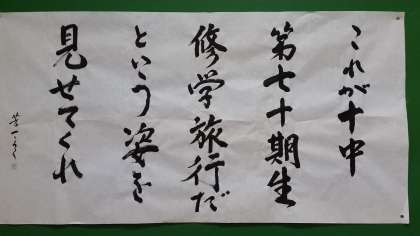 これが十中
第七十期生
修学旅行だ
という姿を
見せてくれ